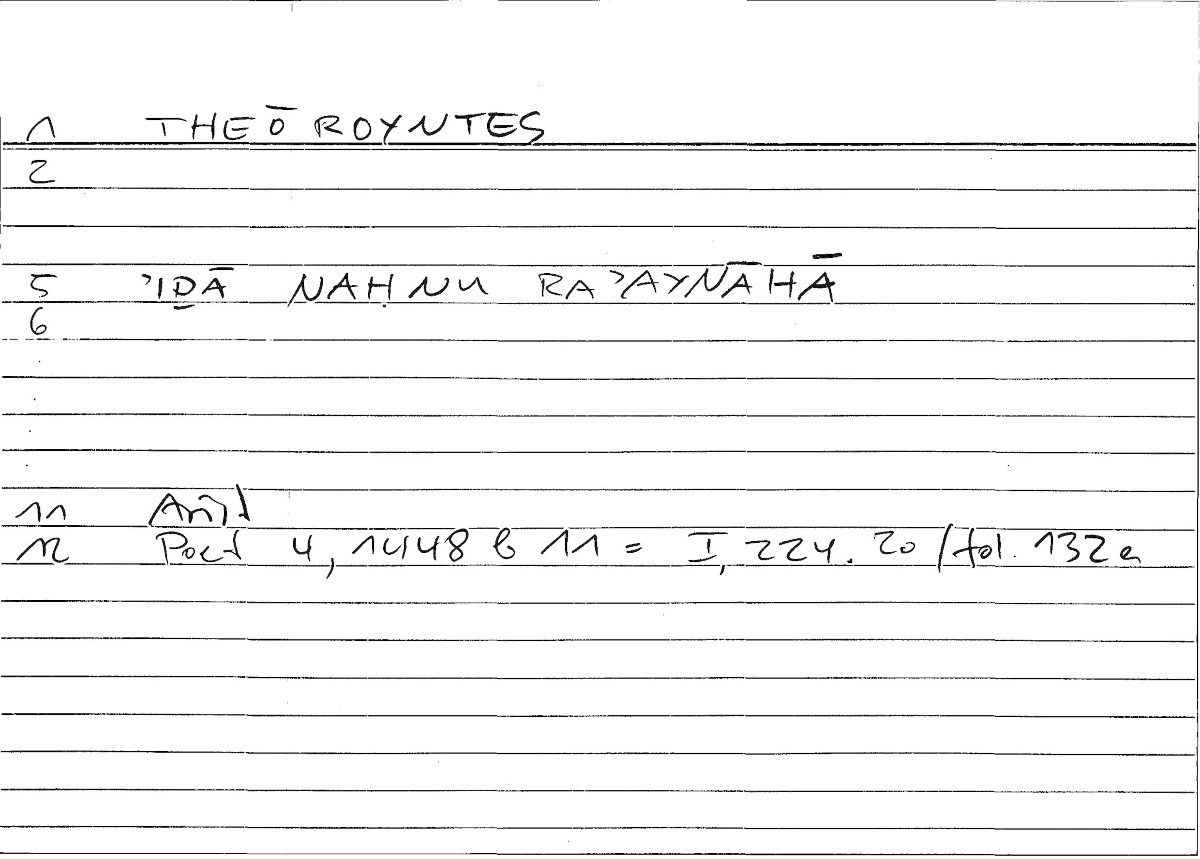 1 THEŌROYNTES
2
5 ʾIḎĀ NAḤNU RAʾAYNĀHĀ
6
.
.
.
.
11 Arist
12 Poet 4, 1448 b 11 = I, 224.20 / fol. 132a